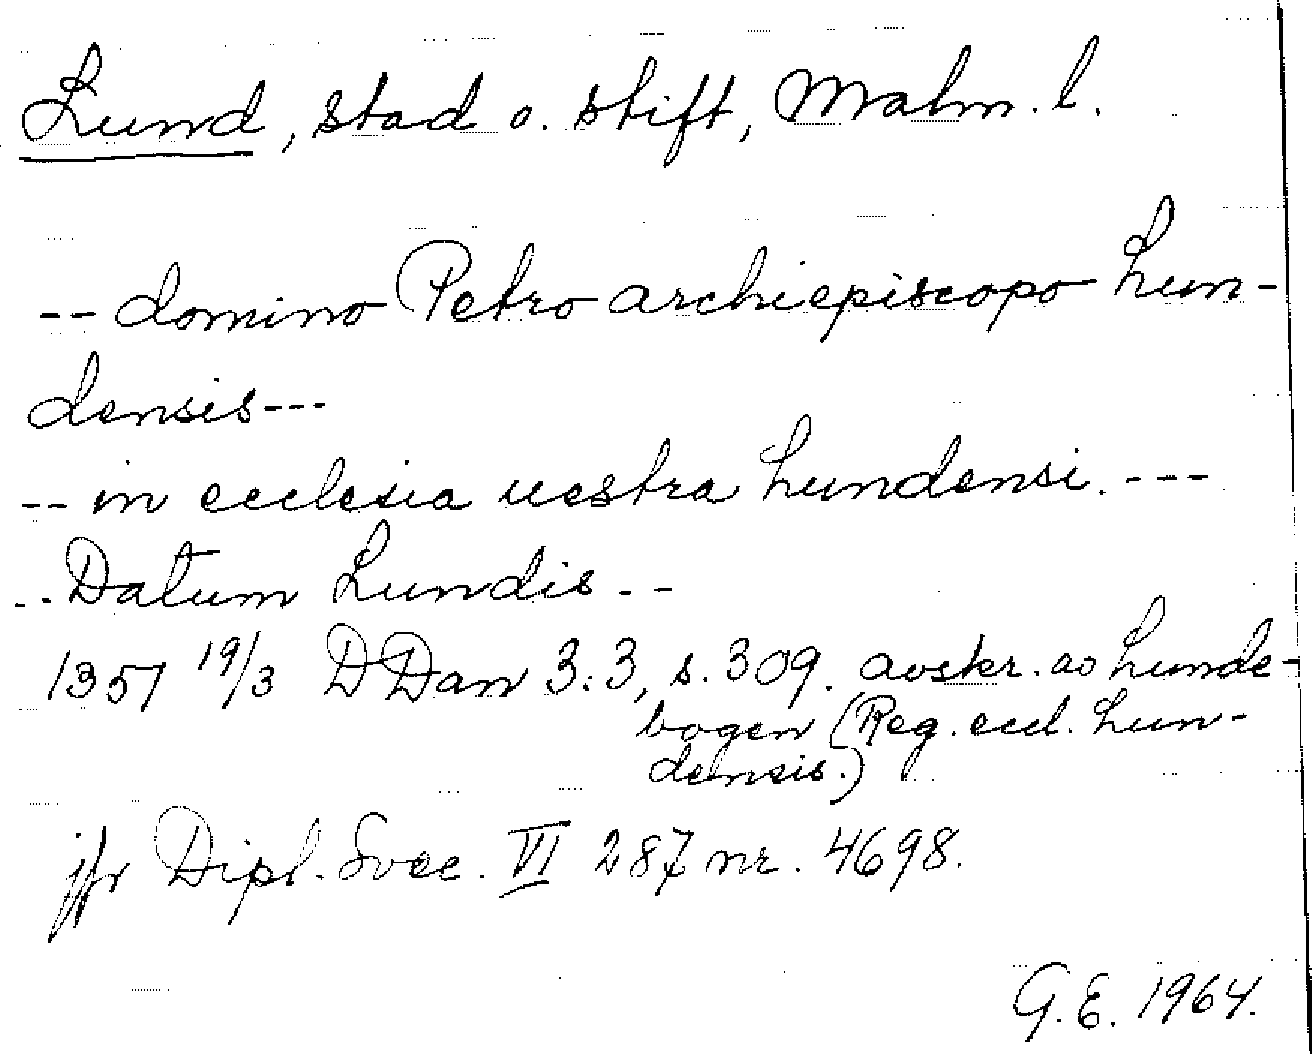 Lund, stad o. stift, Malm. l.
-- domino Petro archiepiscopo Lun-
densis ---
-- in ecclesia uestra Lundensi. ---
-- Datum Lundis. --
1357 19/3 DDan 3:3, s. 309. avskr. av Lunde-
bogen (Reg. eccl. Lun-
densis.)
jfr Dipl. Svec. VI 287 nr. 4698.
G. E. 1964.